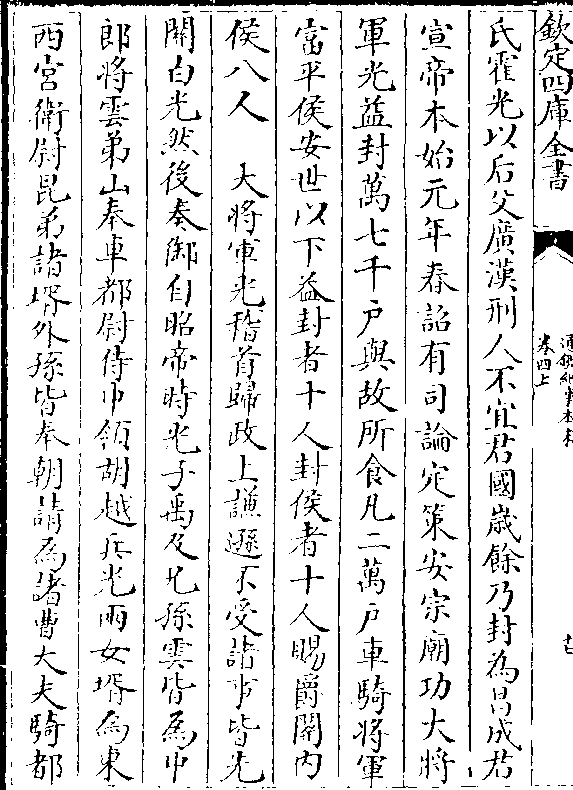 欽定四庫全書
通鑑紀事本末
卷四上
氏霍光以后父廣漢刑人不宜君國歲餘乃封為昌成君
宣帝本始元年春詔有司論定策安宗廟功大將
軍光益封萬七千户與故所食凡二萬户車騎將軍
富平侯安世以下益封者十人封侯者十人賜爵關内
侯八人 大將軍光稽首歸政上謙遜不受諸事皆先
關白光然後奏御自昭帝時光子禹及兄孫雲皆為中
郎將雲弟山奉車都尉侍中領胡越兵光兩女壻為東
西宮衛尉昆弟諸壻外孫皆奉朝請為諸曹大夫騎都